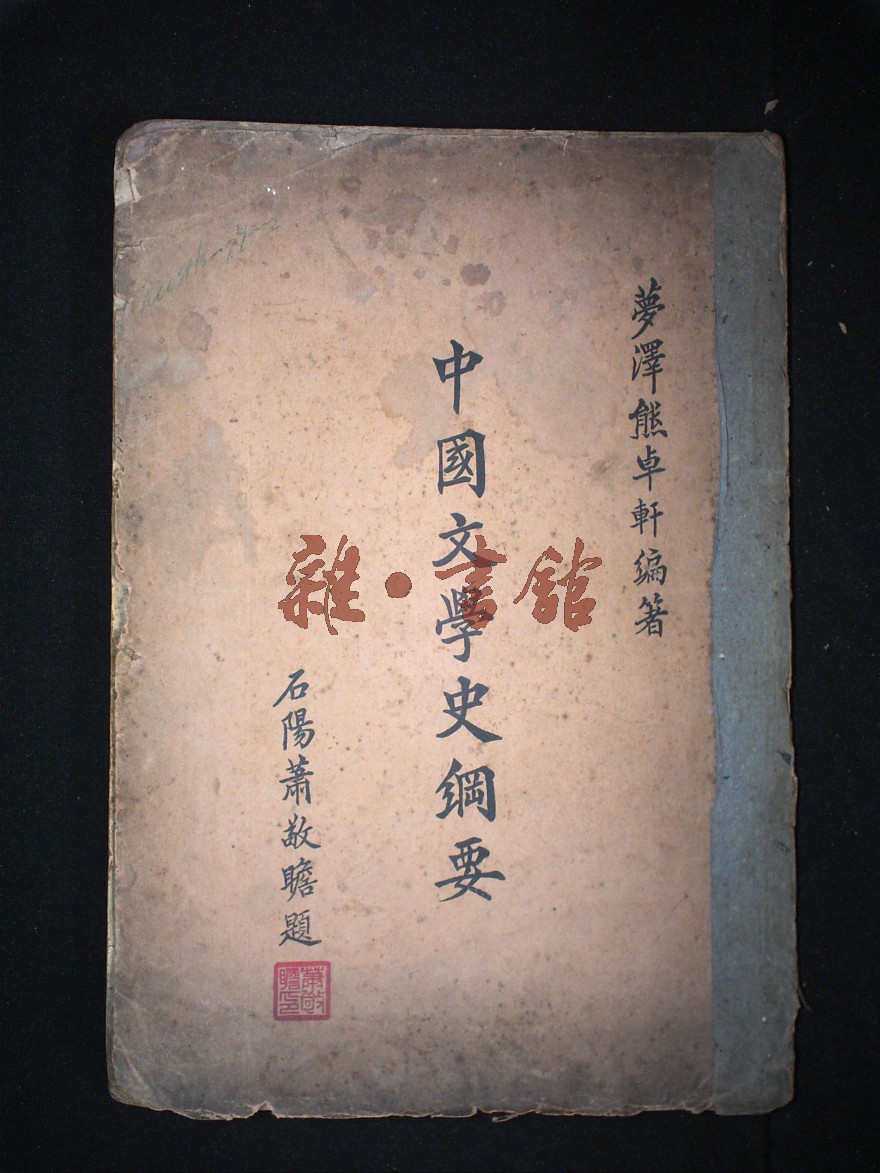 夢澤熊卓軒編著
中國文學史綱要
石陽蕭敬瞻題
蕭敬瞻印
雜·書館